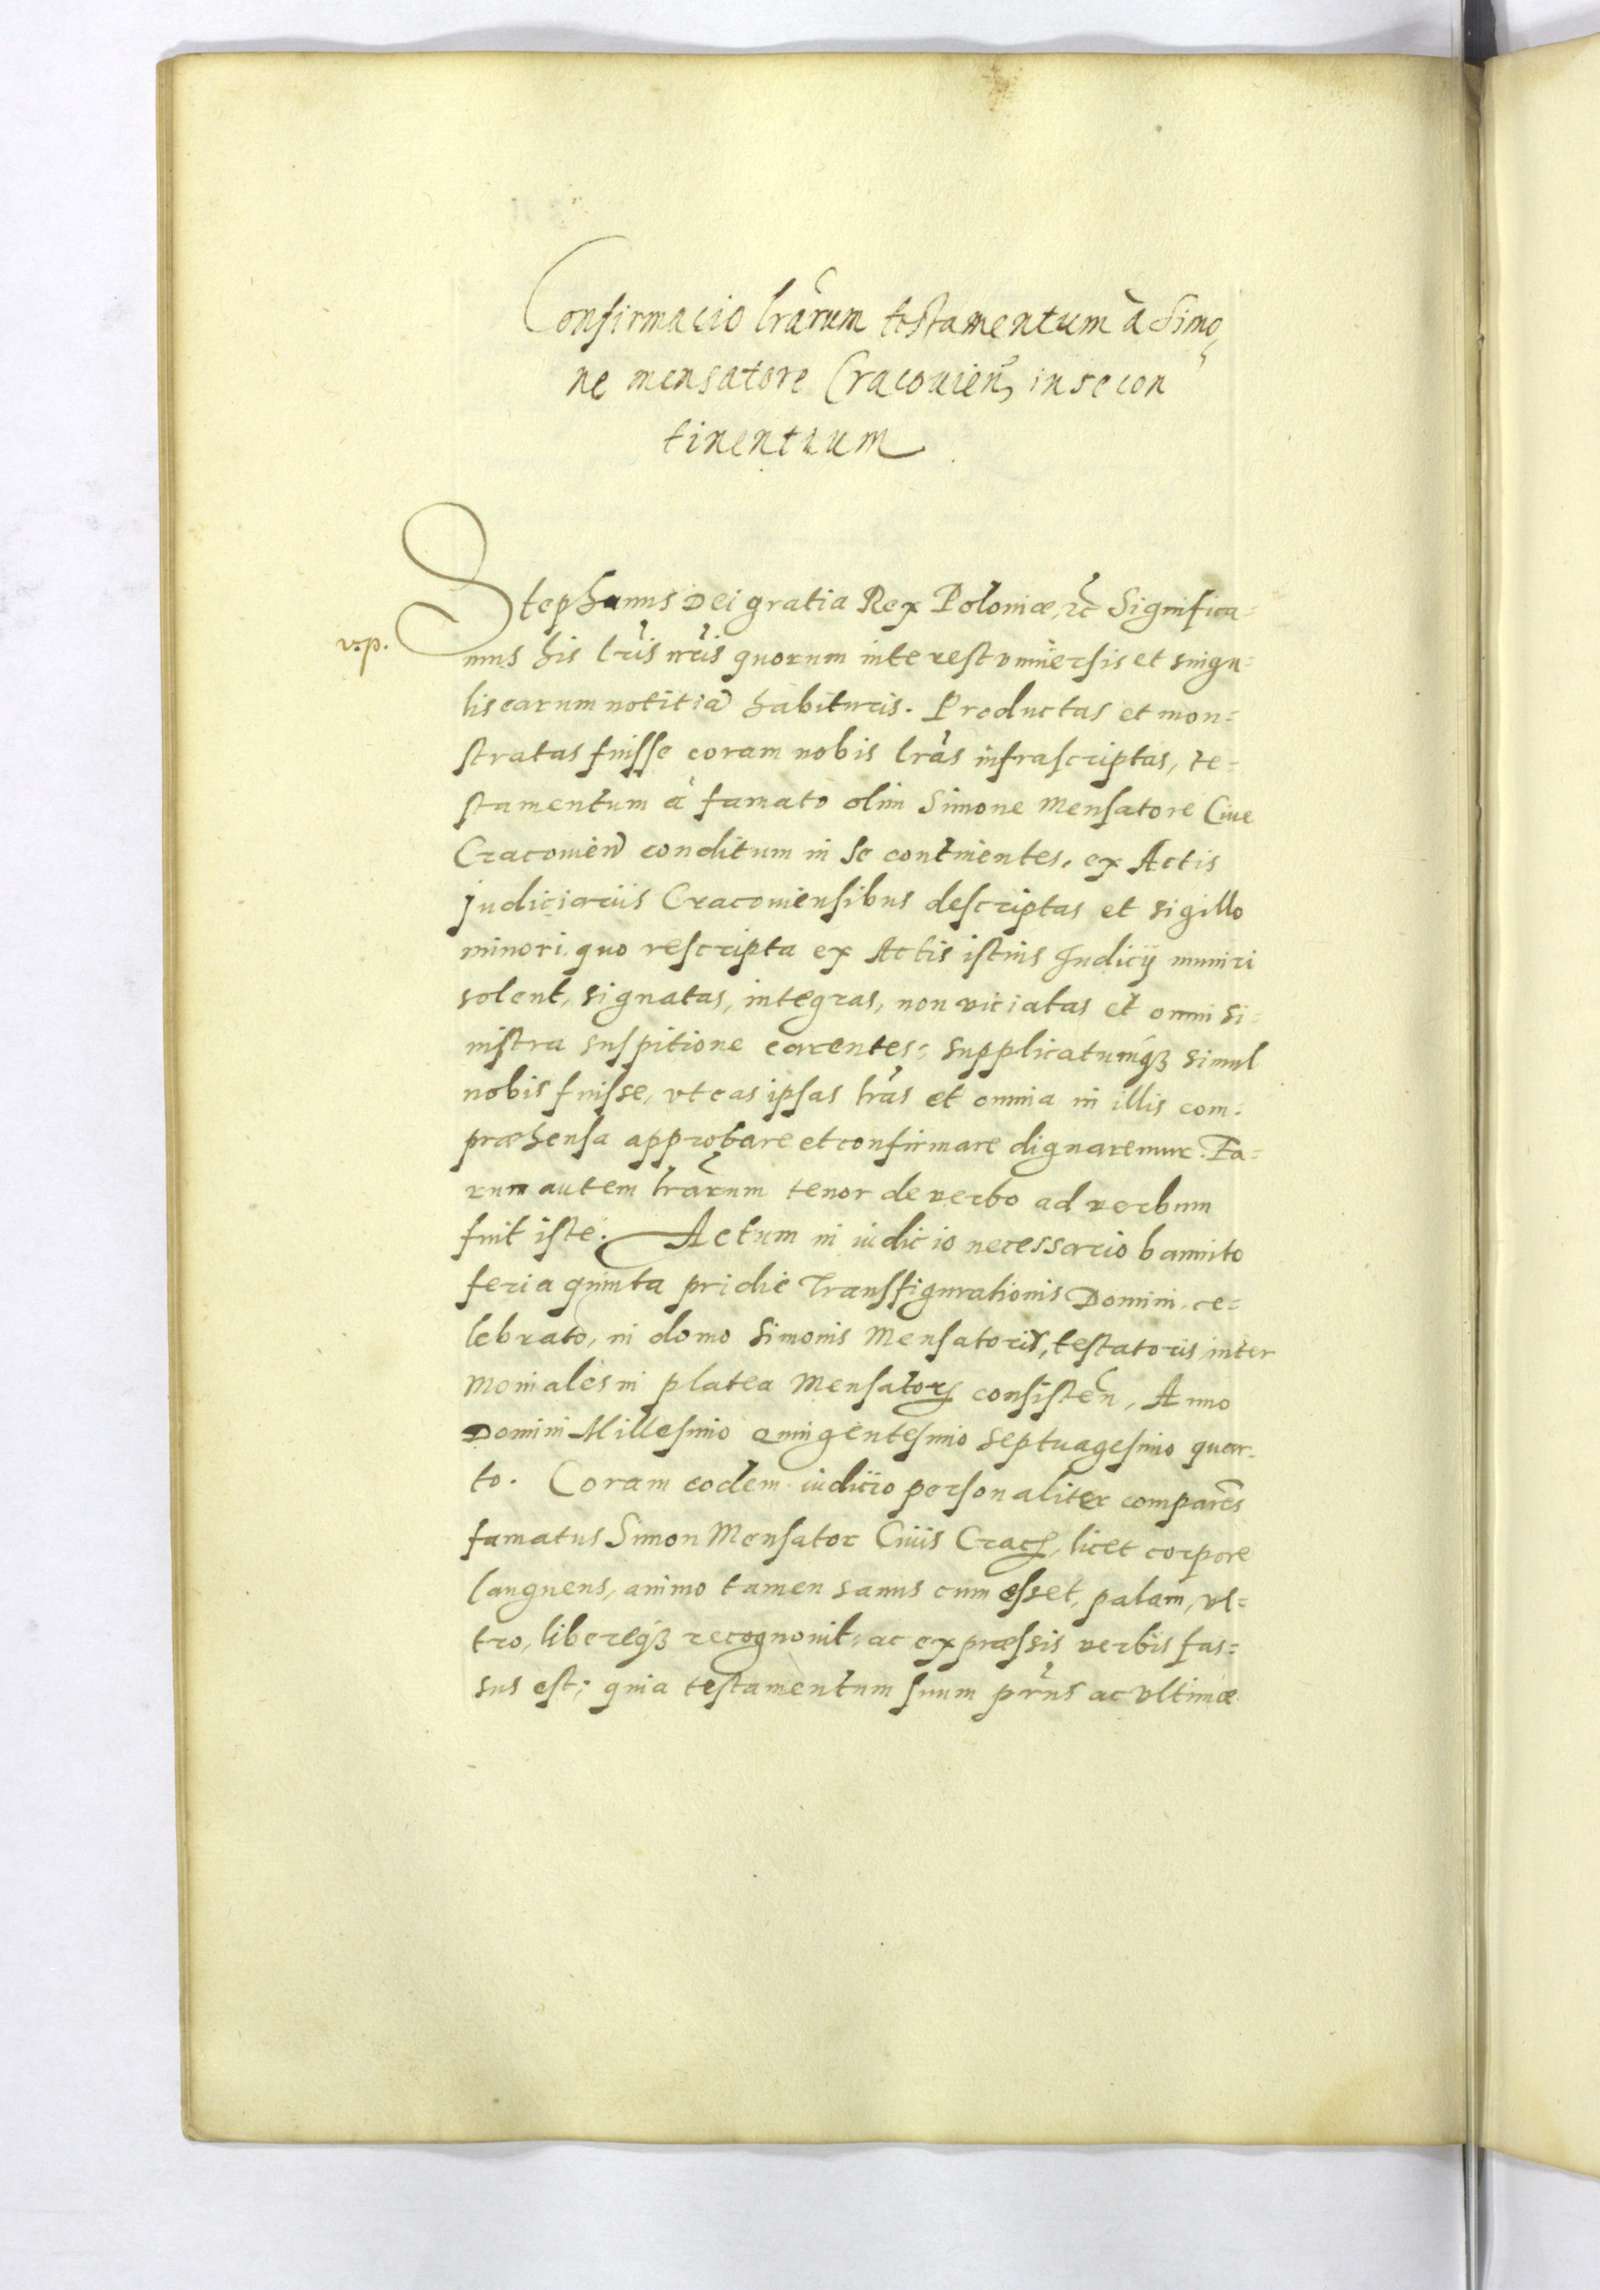 Confirmacio lrarum testamentum à Simo
ne mensatore Cracouien in se con
tinentium
Stephanus Dei gratia Rex Poloniæ, etc Significa-
v.p.
mus his lris nris quorum interest vniuersis et singu-
lis earum notitia habituris. Productas et mon-
stratas fuisse coram nobis lras infrascriptas, te-
stamentum à famato olim Simone Mensatore Ciue
Cracouien conditum in se continentes, ex Actis
judiciariis Cracouiensibus descriptas et sigillo
minori quo rescripta ex Actis istius Judicij muniri
solent, signatas, integras, non viciatas et omni si-
nistra suspitione carentes; supplicatumq3 simul
nobis fuisse, vt eas ipsas lras et omnia in illis com-
præhensa approbare et confirmare dignaremur. Ea-
rum autem lrarum tenor de verbo ad verbum
fuit iste. Actum in iudicio necessario bannito
feria quinta pridie Transfigurationis Domini, ce-
lebrato, in domo Simonis Mensatoris, testatoris inter
Moniales in platea Mensator consisten, Anno
Domini Millesimo Quingentesimo septuagesimo quar-
to. Coram eodem iudicio personaliter comparens
famatus Simon Mensator Ciuis Crac, licet corpore
languens, animo tamen sanus cum esset, palam, vl-
tro, libereq3 recognouit, ac expræssis verbis fas-
sus est; quia testamentum suum prius ac vltimæ